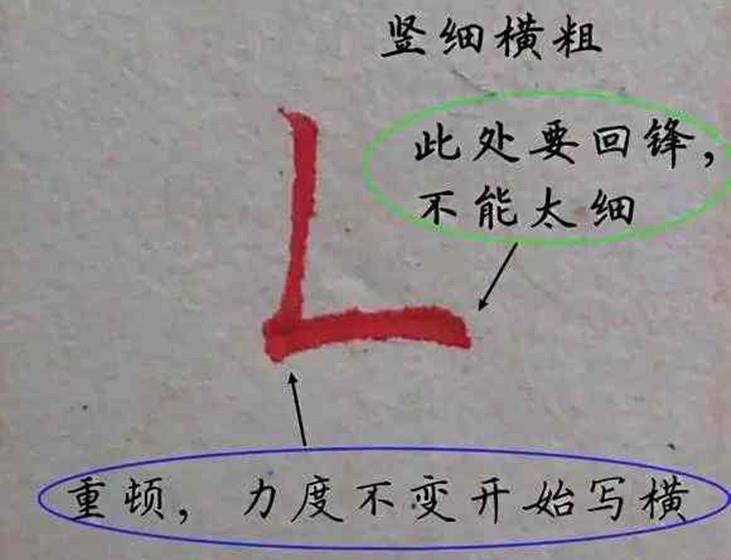 竖细横粗
此处要回锋，
不能太细
重顿，力度不变开始写横